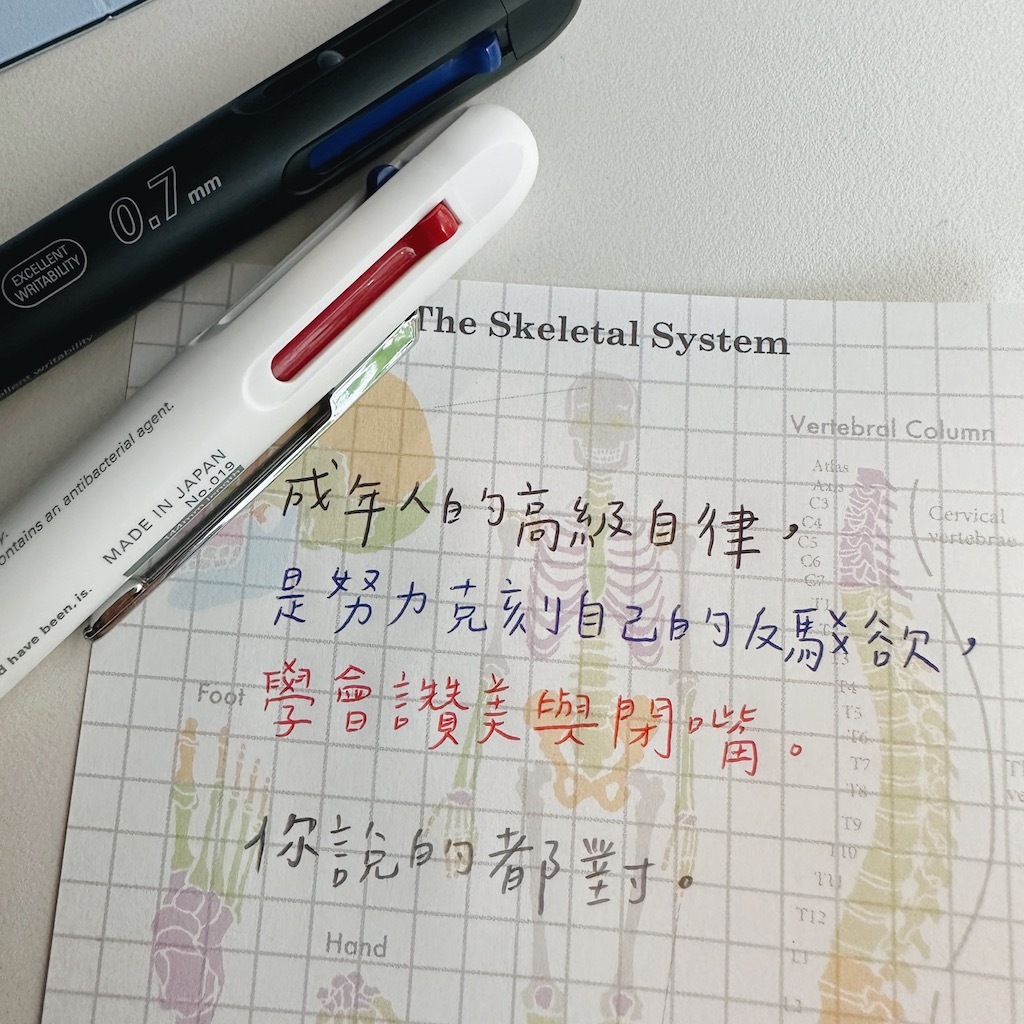 0.7 mm
EXCELLENT
WRITABILITY
ellent writability
contains an antibacterial agent.
MADE IN JAPAN
No.019
d have been, is.
The Skeletal System
Vertebral Column
Atlas
Axis
C3
C4
C5
C6
C7
Cervical
vertebrae
成年人的高級自律，
是努力克刻自己的反駁欲，
學會讚美與閉嘴。
你說的都對。
Foot
T4
T5
T6
T7
T8
T9
T10
T11
T12
L1
L2
Hand